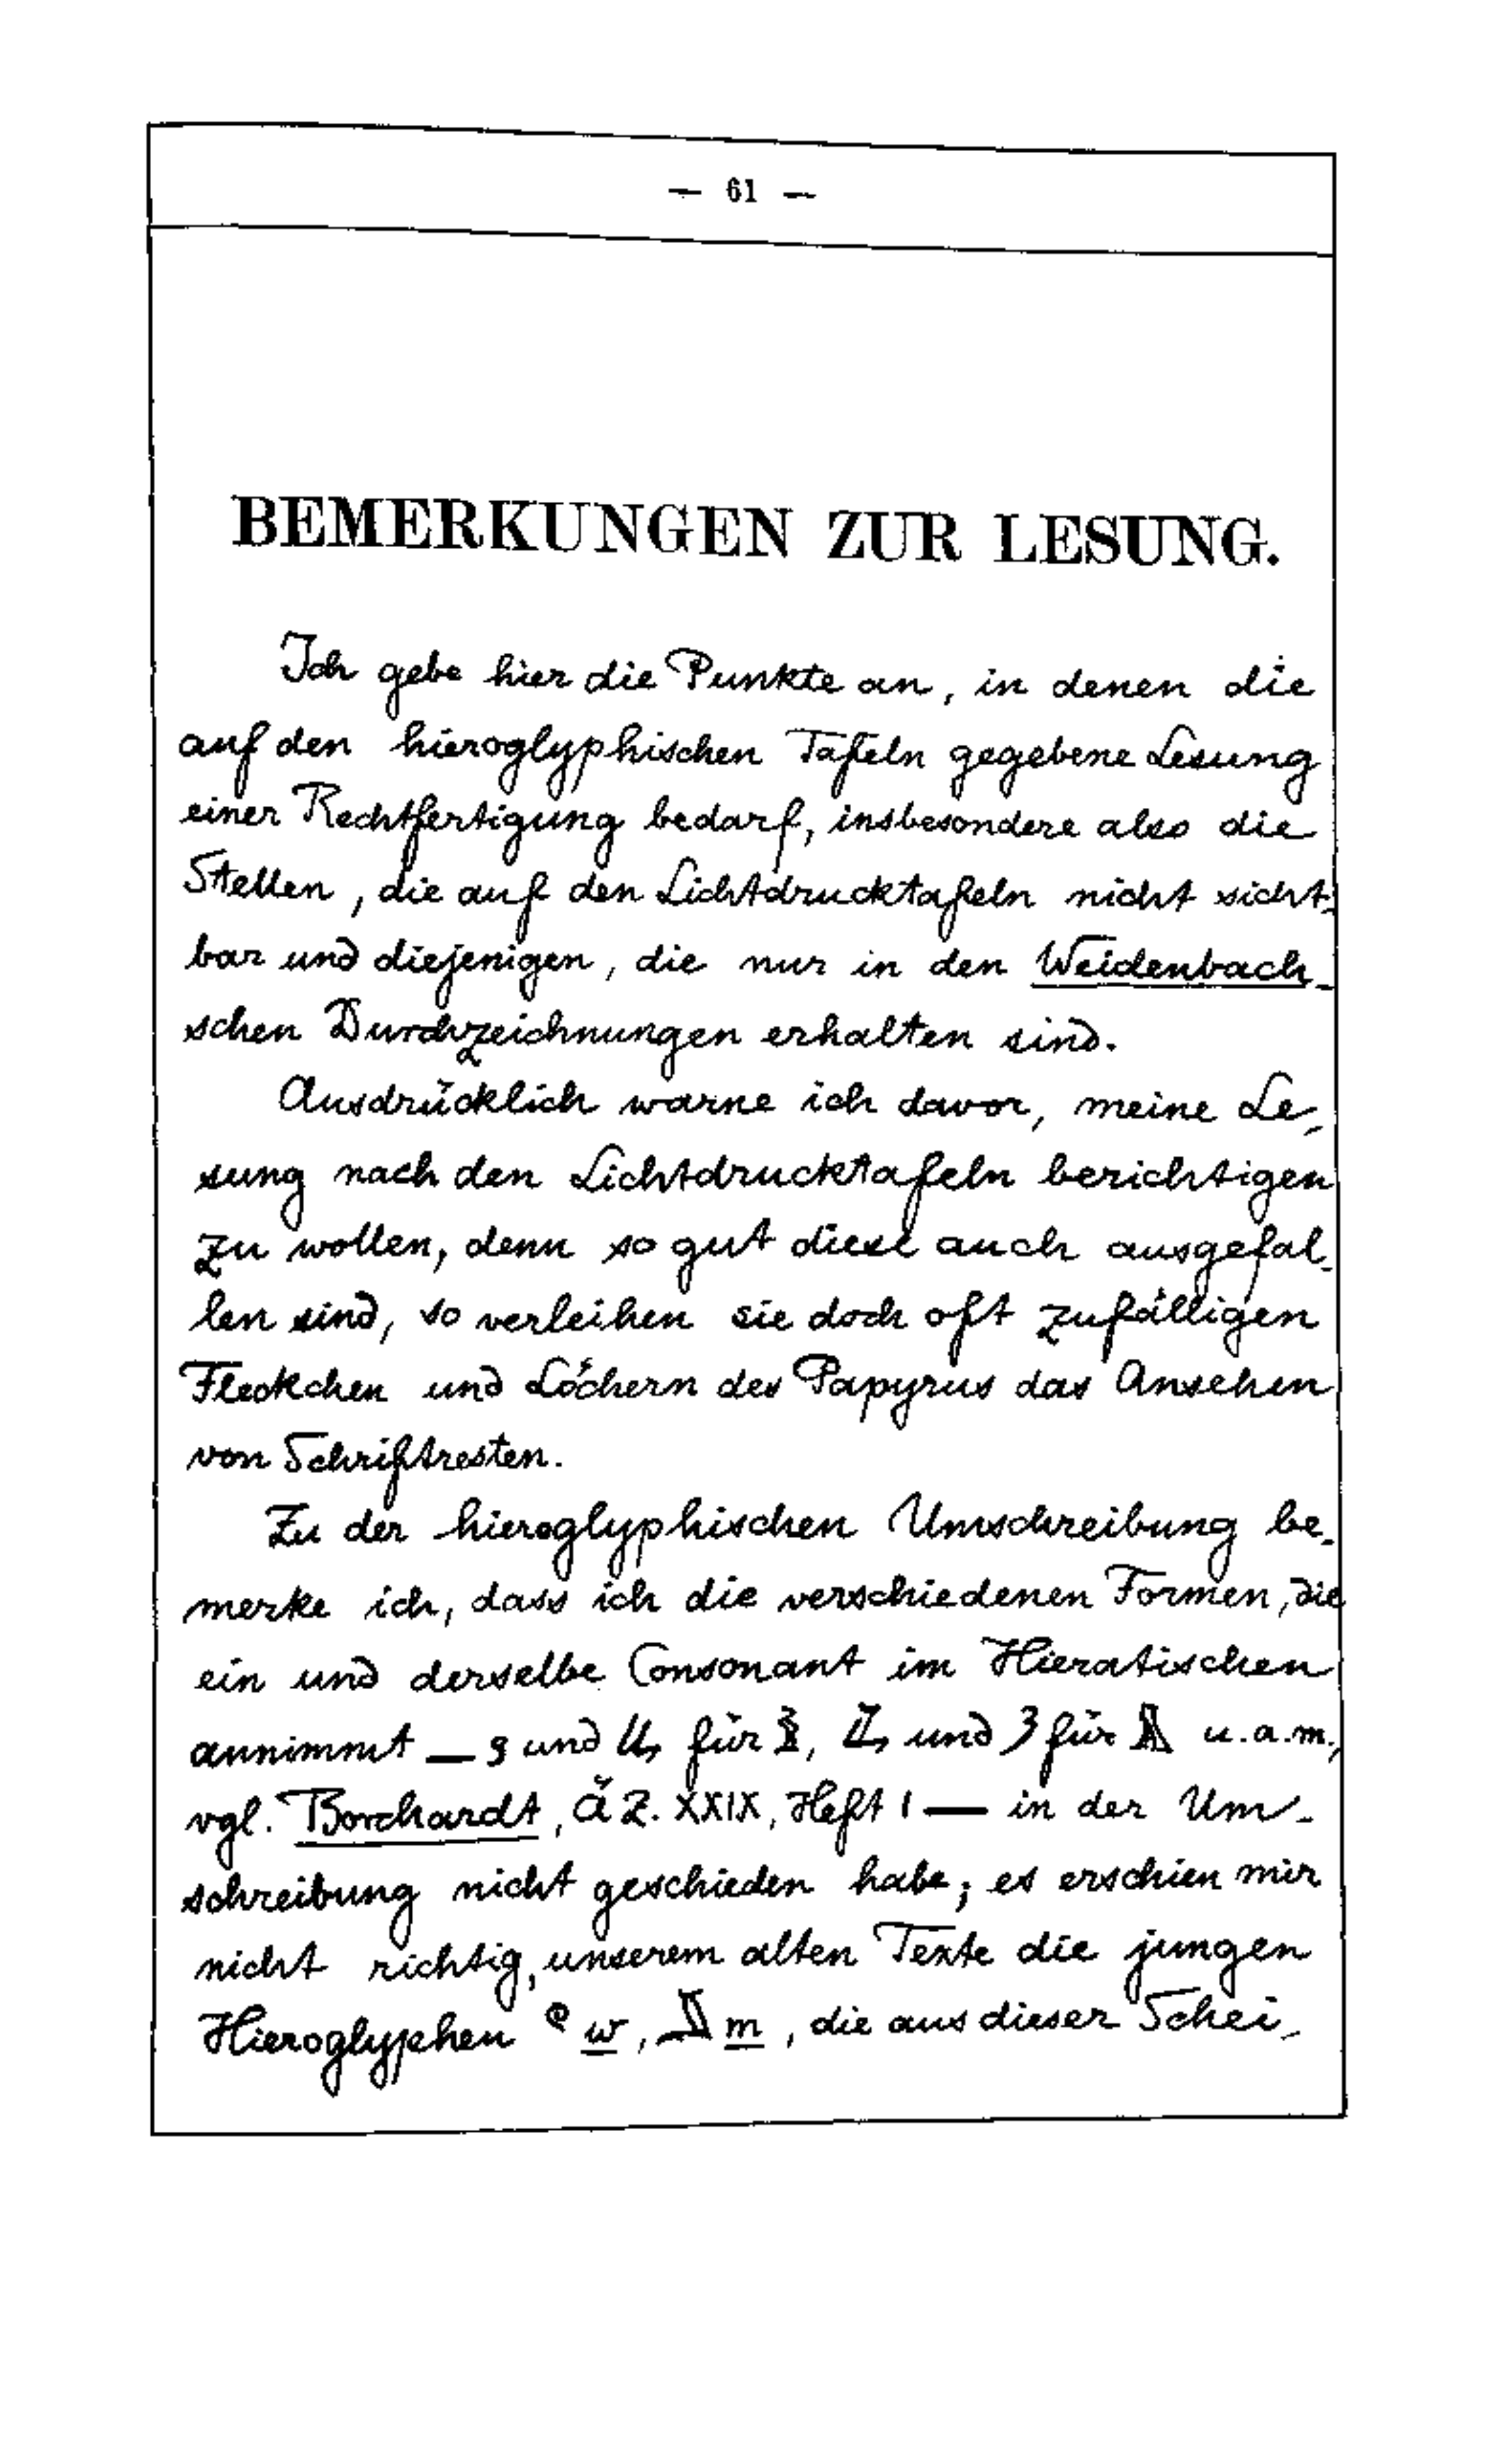 — 61 —
BEMERKUNGEN ZUR LESUNG.
Ich gebe hier die Punkte an, in denen die
auf den hieroglyphischen Tafeln gegebene Lesung
einer Rechtfertigung bedarf, insbesondere also die
Stellen, die auf den Lichtdrucktafeln nicht sicht-
bar und diejenigen, die nur in den Weidenbach-
schen Durchzeichnungen erhalten sind.
Ausdrücklich warne ich davor, meine Le-
sung nach den Lichtdrucktafeln berichtigen
zu wollen, denn so gut diese auch ausgefal-
len sind, so verleihen sie doch oft zufälligen
Fleckchen und Löchern des Papyrus das Ansehen
von Schriftresten.
Zu der hieroglyphischen Umschreibung be-
merke ich, dass ich die verschiedenen Formen, die
ein und derselbe Consonant im Hieratischen
annimmt — und für, und für u.a.m.,
vgl. Borchardt, ÄZ. XXIX, Heft 1 — in der Um-
schreibung nicht geschieden habe; es erschien mir
nicht richtig, unserem alten Texte die jungen
Hieroglyphen 𓏲 w, m, die aus dieser Schei-